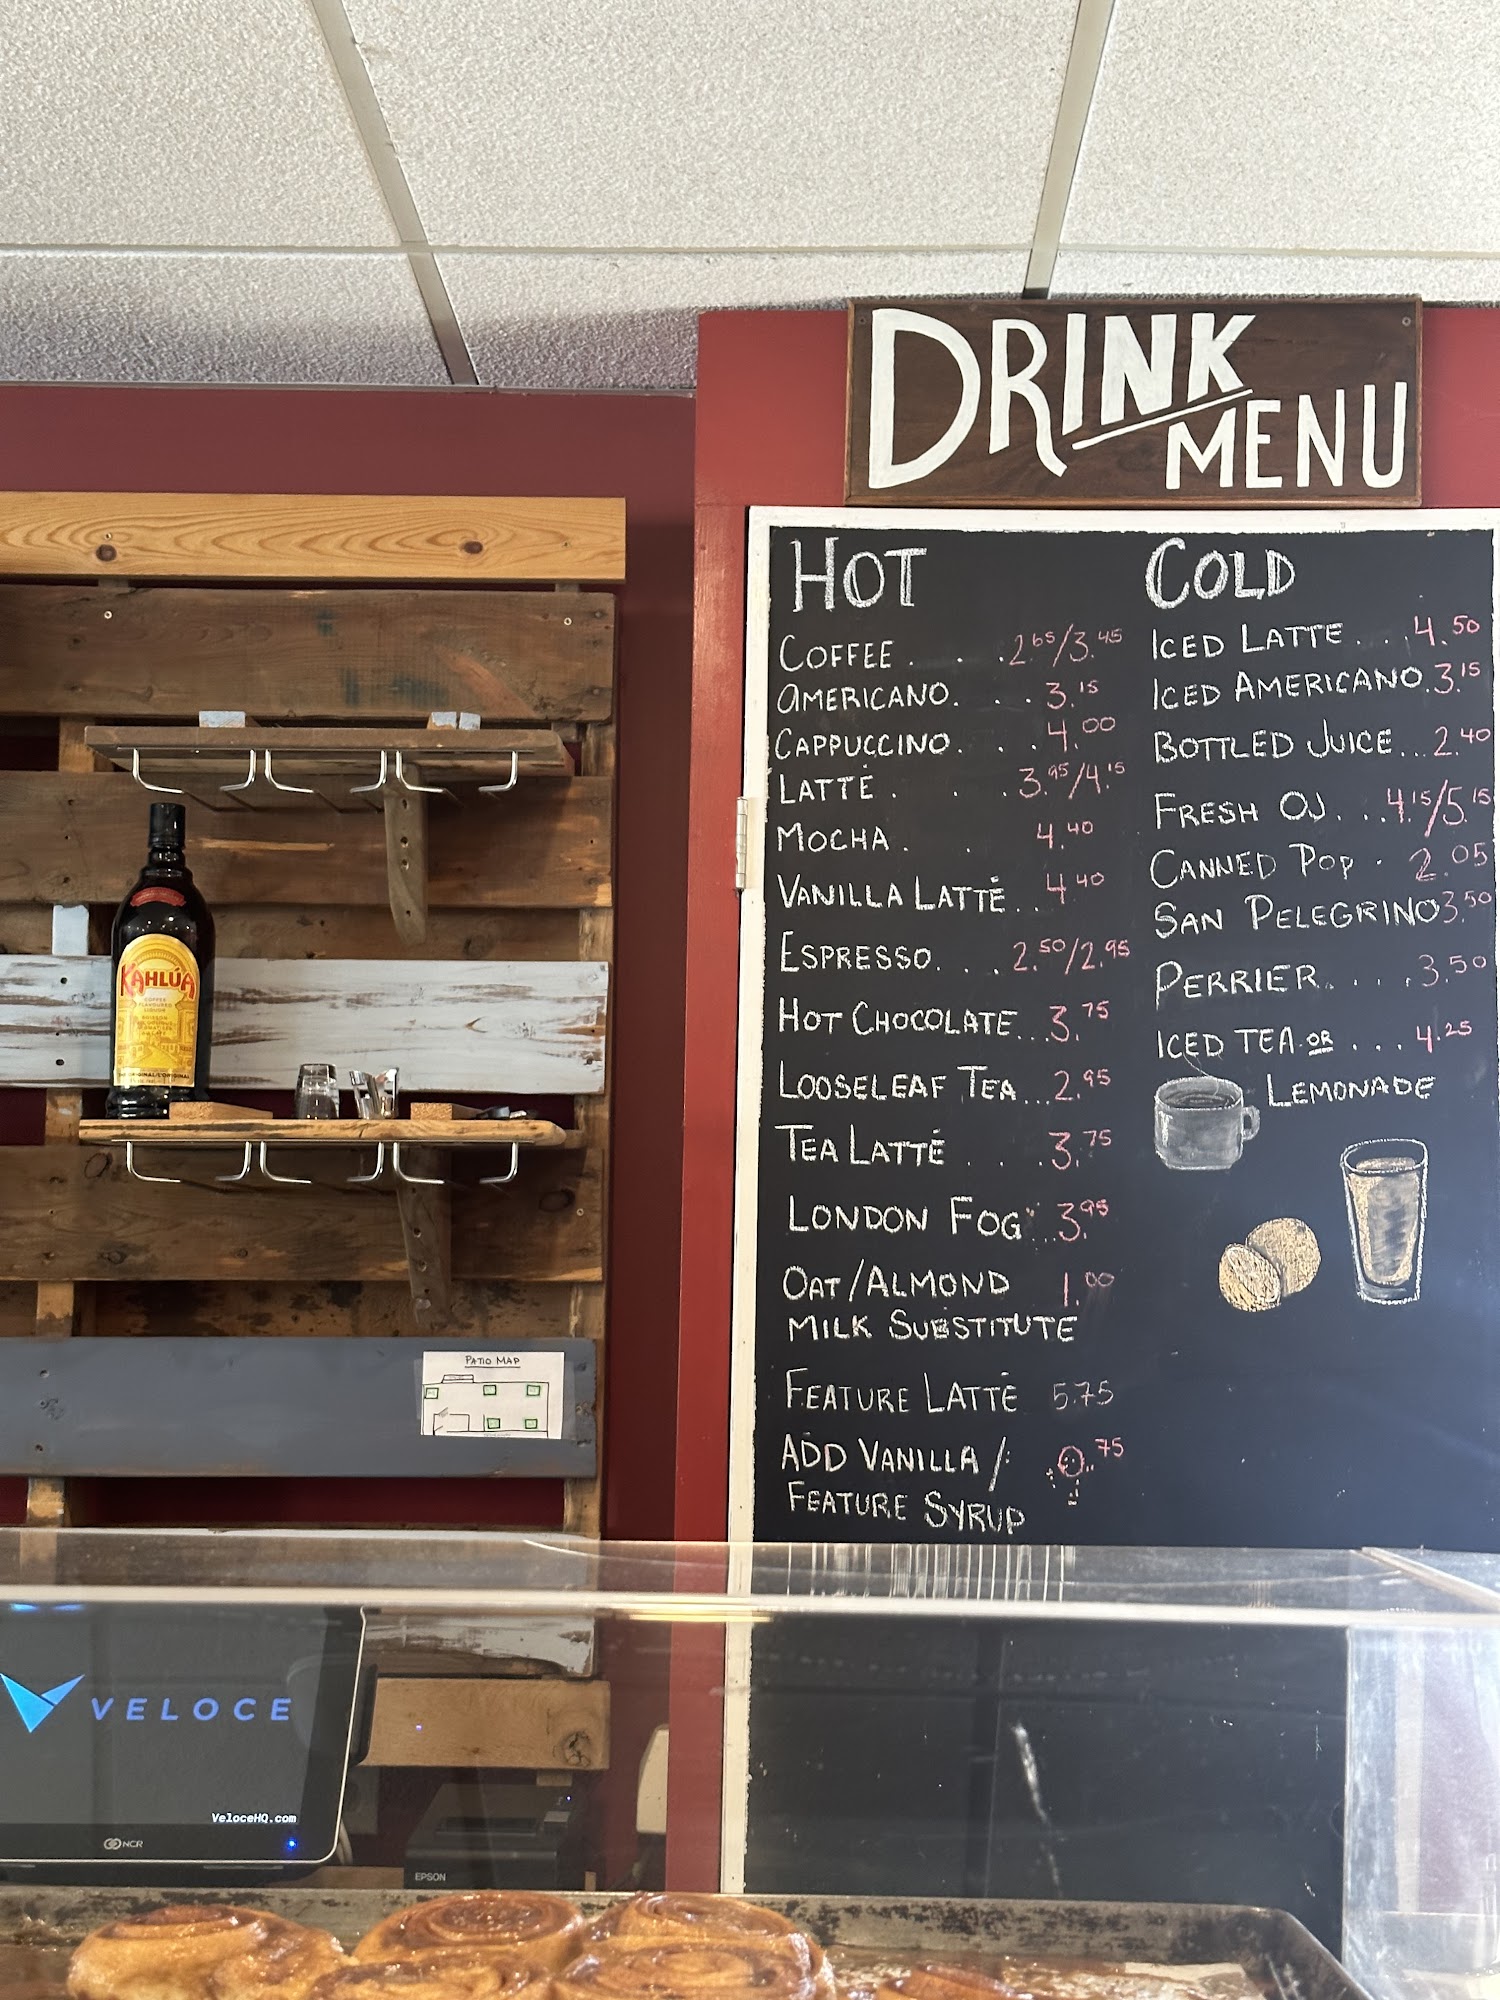 DRINK
MENU
HOT
COFFEE . . . . 2.65/3.45
AMERICANO. . . 3.15
CAPPUCCINO. . . . 4.00
LATTÉ . . . 3.95/4.15
MOCHA . . 4.40
VANILLA LATTÉ . . 4.40
ESPRESSO. . . . 2.50/2.95
HOT CHOCOLATE...3.75
LOOSELEAF TEA...2.95
TEA LATTÉ . . . 3.75
LONDON FOG ...3.95
OAT/ALMOND 1.00
MILK SUBSTITUTE
FEATURE LATTÉ 5.75
ADD VANILLA / .75
FEATURE SYRUP
COLD
ICED LATTE . . . 4.50
ICED AMERICANO.3.15
BOTTLED JUICE...2.40
FRESH OJ. . . . 4.15/5.15
CANNED POP . 2.05
SAN PELEGRINO 3.50
PERRIER. . . . . 3.50
ICED TEA OR . . . 4.25
LEMONADE
KAHLÚA
COFFEE
FLAVOURED
LIQUOR
PATIO MAP
VELOCE
VeloceHQ.com
NCR
EPSON